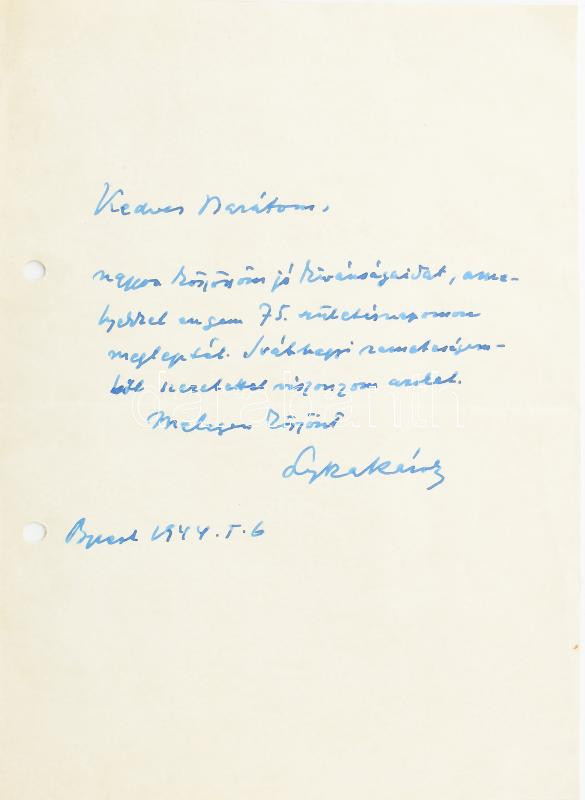 Kedves Barátom,
nagyon köszönöm jó kivánságaidat, ame-
lyekkel engem 75. születésnapomon
megleptél. Svábhegyi remeteségem-
ből szeretettel viszonzom azokat.
Melegen köszönt
Lyka Károly
Bpest 1944. I. 6
darabanth